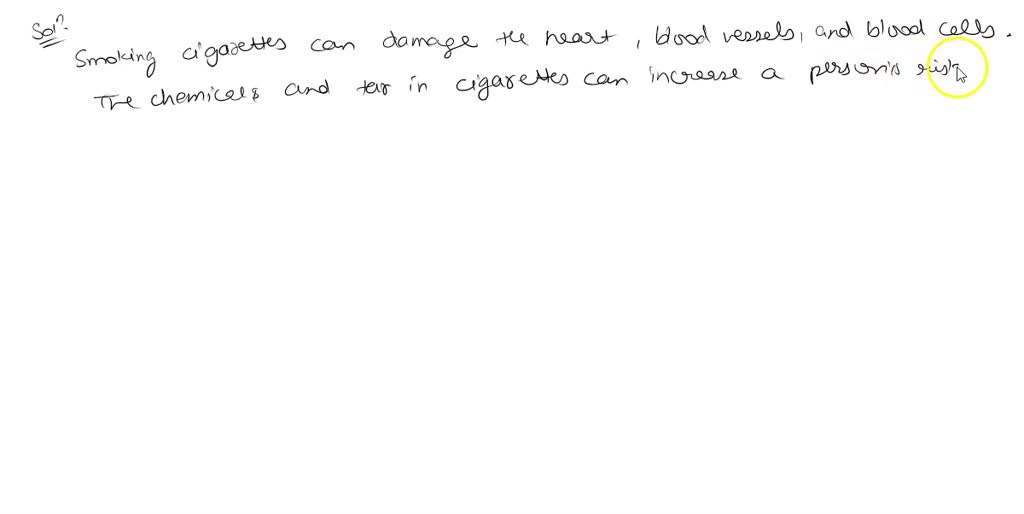 Sol?
Smoking cigarettes can damage the heart, blood vessels, and blood cells.
The chemicals and tar in cigarettes can increase a person's risk